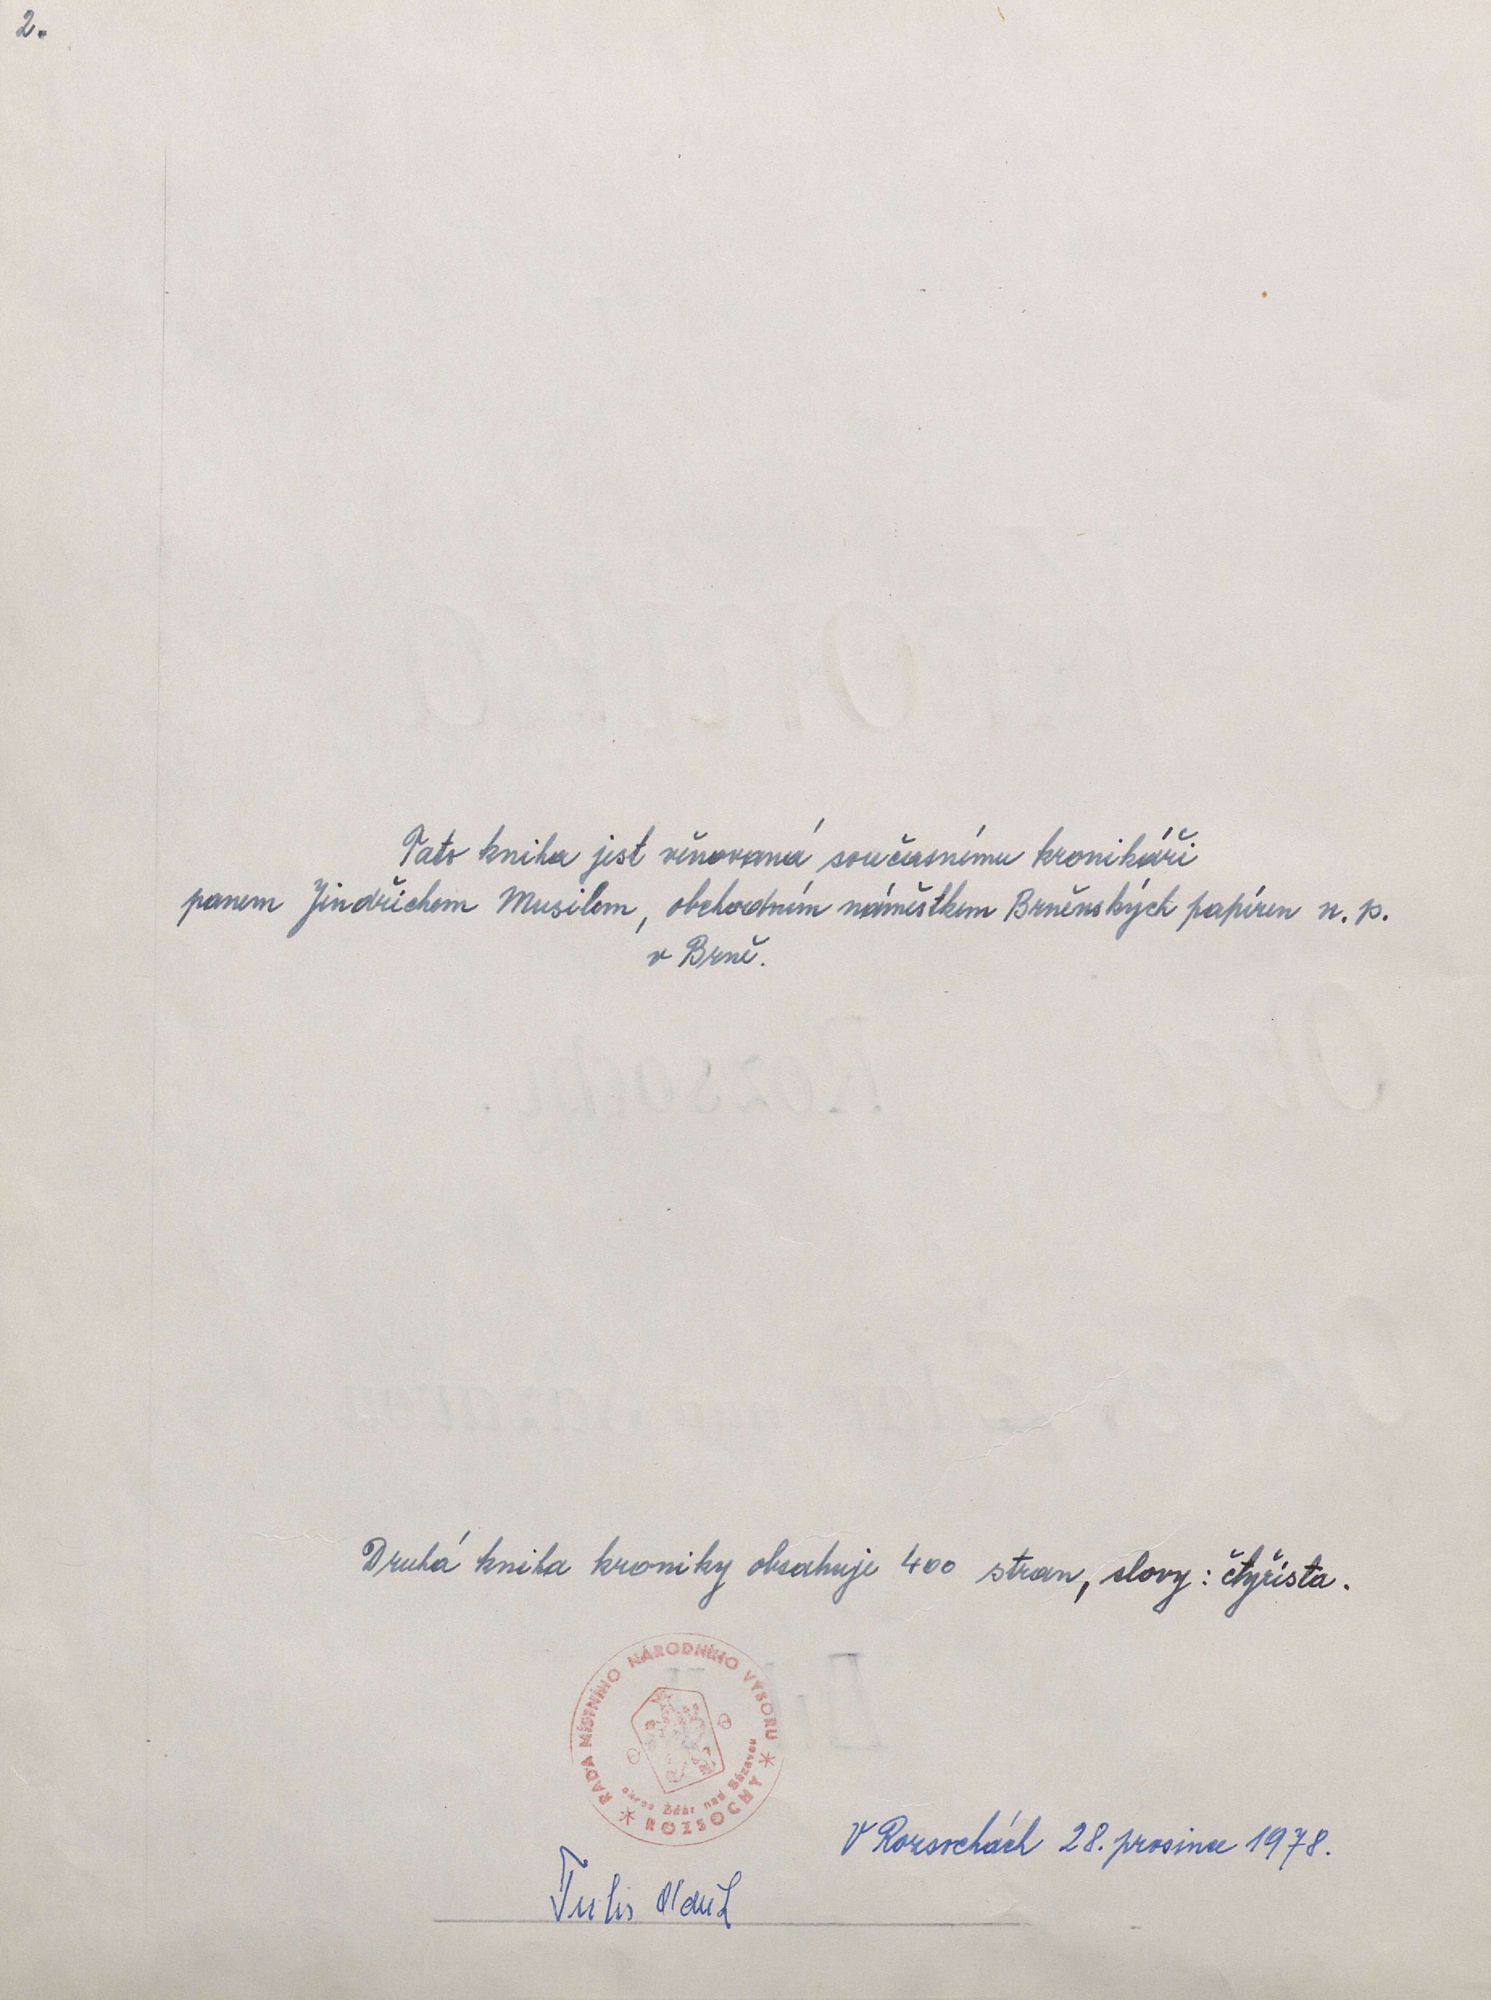 2.
Tato kniha jest věnovaná současnému kronikáři
panem Jindřichem Musilem, obchodním náměstkem Brněnských papíren n. p.
v Brně.
Druhá kniha kroniky obsahuje 400 stran, slovy: čtyřista.
RADA MÍSTNÍHO NÁRODNÍHO VÝBORU
okres Žďár nad Sázavou
ROZSOCHY
V Rozsochách 28. prosince 1978.